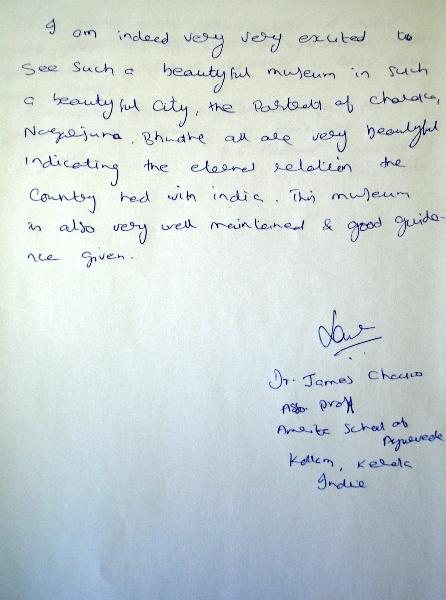 I am indeed very very excited to
See Such a beautyful museum in such
a beautyful City, the Portrets of charaka,
Nagarjuna, Bhudha all are very beautyful
indicating the eternal relation the
Country had with india. This museum
is also very well maintained & good guida-
nce given.
Dr. James Chacko
Asso proff
Amrita School of
Ayurveda
Kollam, Kerala
India